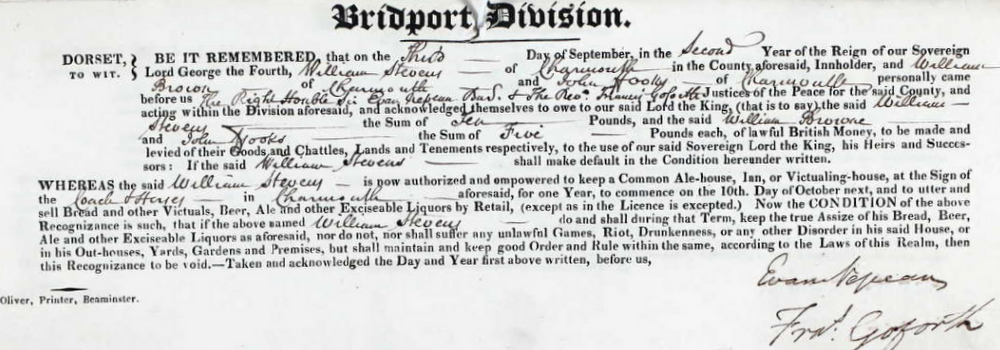 Bridport Division.
DORSET, } BE IT REMEMBERED, that on the Third Day of September, in the Second Year of the Reign of our Sovereign
TO WIT. } Lord George the Fourth, William Stevens of Charmouth in the County aforesaid, Innholder, and William
Brown of Charmouth and John Hooks of Charmouth personally came
before us The Right Honble Sir Evan Nepean Bart. & The Revd. Francis Goforth Justices of the Peace for the said County, and
acting within the Division aforesaid, and acknowledged themselves to owe to our said Lord the King, (that is to say) the said William
Stevens the Sum of Ten Pounds, and the said William Browne
and John Hooks the Sum of Five Pounds each, of lawful British Money, to be made and
levied of their Goods and Chattles, Lands and Tenements respectively, to the use of our said Sovereign Lord the King, his Heirs and Succes-
sors: If the said William Stevens shall make default in the Condition hereunder written.
WHEREAS the said William Stevens is now authorized and empowered to keep a Common Ale-house, Inn, or Victualing-house, at the Sign of
the Coach & Horses in Charmouth aforesaid, for one Year, to commence on the 10th. Day of October next, and to utter and
sell Bread and other Victuals, Beer, Ale and other Exciseable Liquors by Retail, (except as in the Licence is excepted.) Now the CONDITION of the above
Recognizance is such, that if the above named William Stevens do and shall during that Term, keep the true Assize of his Bread, Beer,
Ale and other Exciseable Liquors as aforesaid, nor do not, shall suffer any unlawful Games, Riot, Drunkenness, or any other Disorder in his said House, or
in his Out-houses, Yards, Gardens and Premises, but shall maintain and keep good Order and Rule within the same, according to the Laws of this Realm, then
this Recognizance to be void.—Taken and acknowledged the Day and Year first above written, before us,
Evan Nepean
Oliver, Printer, Beaminster.
Frs. Goforth